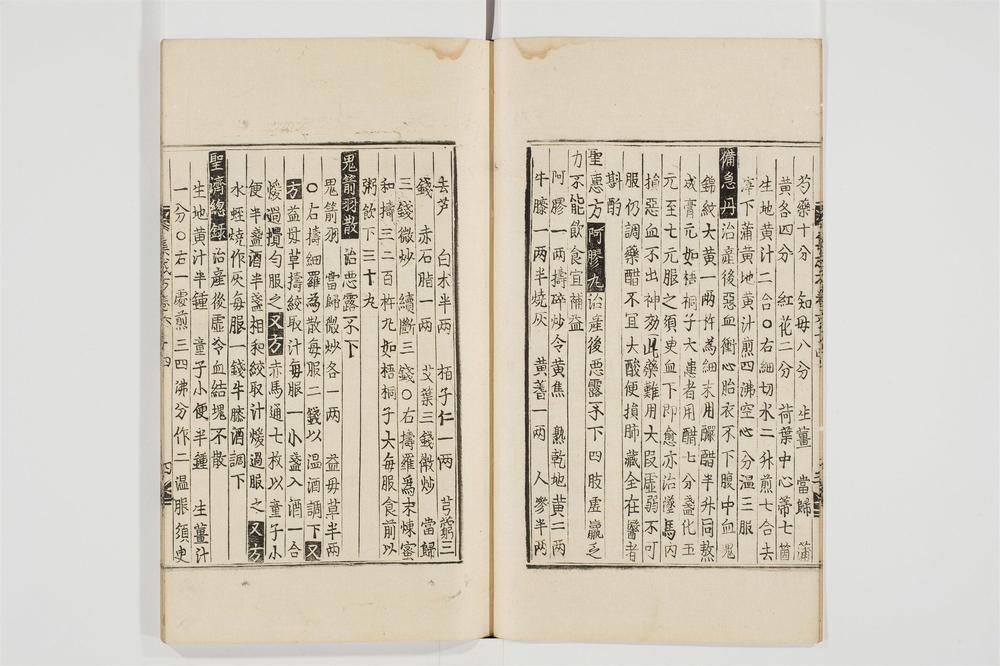 芍藥十分　知母八分　生薑　當歸　蒲
黃各四分　紅花二分　荷葉中心蔕七箇
生地黃汁二合〇右細切水二升煎七合去
滓下蒲黃地黃汁煎四沸空心分溫三服
備急丹治產後惡血衝心胎衣不下腹中血塊
錦紋大黃一兩杵爲細末用釅醋半升同熬
成膏元如梧桐子大患者用醋七分盞化五
元至七元服之須臾血下即愈亦治墮馬內
損惡血不出神効此藥難用大段虛弱不可
服仍調藥醋不宜大酸便損肺藏全在醫者
斟酌
聖惠方阿膠丸治產後惡露不下四肢虛羸乏
力不能飮食宜補益
阿膠一兩擣碎炒令黃焦　熟乾地黃二兩
牛膝一兩半燒灰　黃蓍一兩　人參半兩
去芦　白朮半兩　栢子仁一兩　芎藭三
錢　赤石脂一兩　艾葉三錢微炒　當歸
三錢微炒　續斷三錢〇右擣羅爲末煉蜜
和擣三二百杵丸如梧桐子大每服食前以
粥飮下三十丸
鬼箭羽散治惡露不下
鬼箭羽　當歸微炒各一兩　益母草半兩
〇右擣細羅爲散每服二錢以溫酒調下又
方益母草擣絞取汁每服一小盞入酒一合
煖過攪勻服之又方赤馬通七枚以童子小
便半盞酒半盞相和絞取汁煖過服之又方
水蛭燒作灰每服一錢牛膝酒調下
聖濟總錄治產後虛冷血結塊不散
生地黃汁半鍾　童子小便半鍾　生薑汁
一分〇右一處煎三四沸分作二溫服須臾